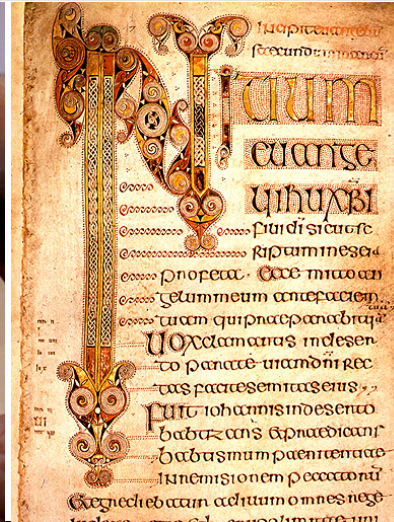 INITIUM
euange
lii ihu xpi
fili di sicut sc
riptum in esei
profeta · Ecce mitto an
gelum meum ante faciem
tuam qui praeparabit uia
Uox clamantis in deser
to parate uiam dni rec
tas facite semitas eius
Fuit iohannis in deserto
babtizans & praedicans
babtismum paenitentiae
in remisionem peccatoru
& egrediebatur ad illum omnes rege